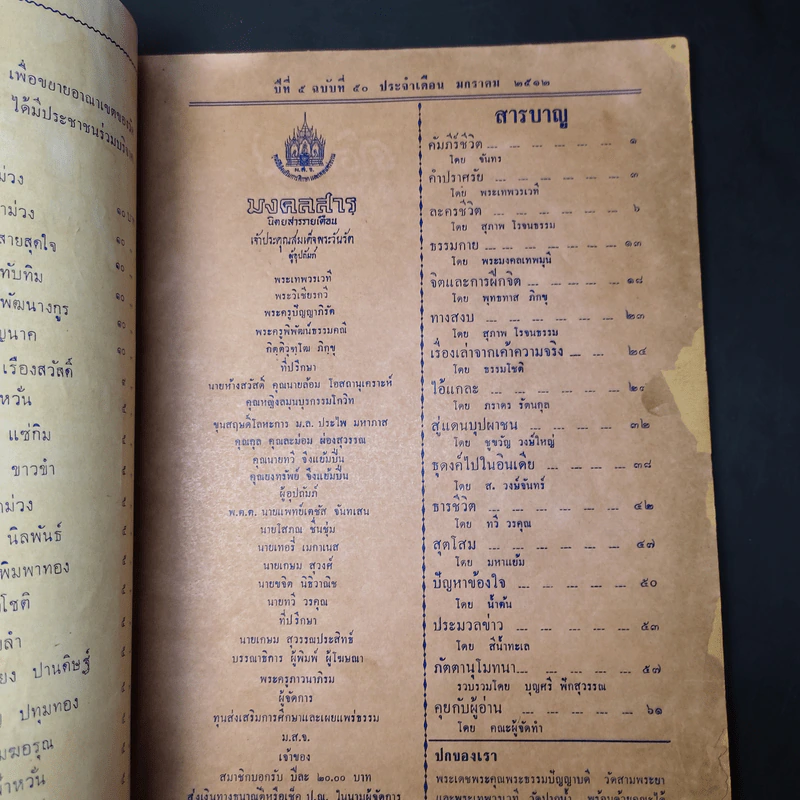 เพื่อขยายอาณาเขตของวัด
ได้มีประชาชนร่วมบริจาค
ม่วง
าม่วง ๑๐
สายสุดใจ ๑๐
ทับทิม ๑๐
พัฒนางกูร ๑๐
ญนาค ๑๐
เรืองสวัสดิ์ ๙
หวั่น ๕
แซ่กิม ๕
ขาวขำ ๕
าม่วง ๕
นิลพันธ์ ๕
พิมพาทอง ๕
โชติ ๕
ยลำ
ยง ปานดิษฐ์ ๕
ปทุมทอง
มฆอรุณ
ำหวั่น
ปีที่ ๕ ฉบับที่ ๕๐ ประจำเดือน มกราคม ๒๕๑๒
ม.ส.จ.
มงคลสาร
นิตยสารรายเดือน
เจ้าประคุณสมเด็จพระวันรัต
ผู้อุปถัมภ์
พระเทพวรเวที
พระวิเชียรกวี
พระครูปัญญาภิรัต
พระครูพิพัฒน์ธรรมคณี
กิตติวุฑฺโฒ ภิกขุ
ที่ปรึกษา
นายห้างสวัสดิ์ คุณนายล้อม โอสถานุเคราะห์
คุณหญิงสมบุนบุรกรรมโกวิท
ขุนสฤษดิ์โลหะการ ม.ล. ประไพ มหากาส
คุณกุล คุณละม่อม ผ่องสุวรรณ
คุณนายทวี จึงแย้มปิ่น
คุณยงทรัพย์ จึงแย้มปิ่น
ผู้อุปถัมภ์
พ.ต.ต. นายแพทย์เตชัส จันทเสน
นายโสภณ ชื่นชุ่ม
นายเทอรี่ เมกาเนส
นายเกษม สุวงศ์
นายขจิต นิธิวาณิช
นายทวี วรคุณ
ที่ปรึกษา
นายเกษม สุวรรณประสิทธิ์
บรรณาธิการ ผู้พิมพ์ ผู้โฆษณา
พระครูภาวนาภิรม
ผู้จัดการ
ทุนส่งเสริมการศึกษาและเผยแพร่ธรรม
ม.ส.จ.
เจ้าของ
สมาชิกบอกรับ ปีละ ๒๐.๐๐ บาท
ส่งเงินทางธนาณัติหรือเช็ค ป.ณ. ในนามผู้จัดการ
สารบาญ
คัมภีร์ชีวิต ๑
โดย จันทร
คำปราศรัย ๓
โดย พระเทพวรเวที
ละครชีวิต ๖
โดย สุภาพ โรจนธรรม
ธรรมกาย ๑๓
โดย พระมงคลเทพมุนี
จิตและการฝึกจิต ๑๘
โดย พุทธทาส ภิกขุ
ทางสงบ ๒๓
โดย สุภาพ โรจนธรรม
เรื่องเล่าจากเค้าความจริง ๒๔
โดย ธรรมโชติ
ไอ้แกละ
โดย ภราดร รัตนกุล
สู่แดนบุปผาชน ๓๒
โดย ชูขวัญ วงษ์ใหญ่
ธุดงค์ไปในอินเดีย ๓๘
โดย ส. วงษ์จันทร์
ธารชีวิต ๔๒
โดย ทวี วรคุณ
สุตโสม ๔๗
โดย มหาแย้ม
ปัญหาข้องใจ ๕๐
โดย น้ำต้น
ประมวลข่าว ๕๓
โดย สีน้ำทะเล
ภัตตานุโมทนา ๕๗
รวบรวมโดย บุญศรี พึกสุวรรณ
คุยกับผู้อ่าน ๖๑
โดย คณะผู้จัดทำ
ปกของเรา
พระเดชพระคุณพระธรรมปัญญาบดี วัดสามพระยา
และพระเทพวรเวที วัดปากน้ำ พร้อมด้วยคณะได้